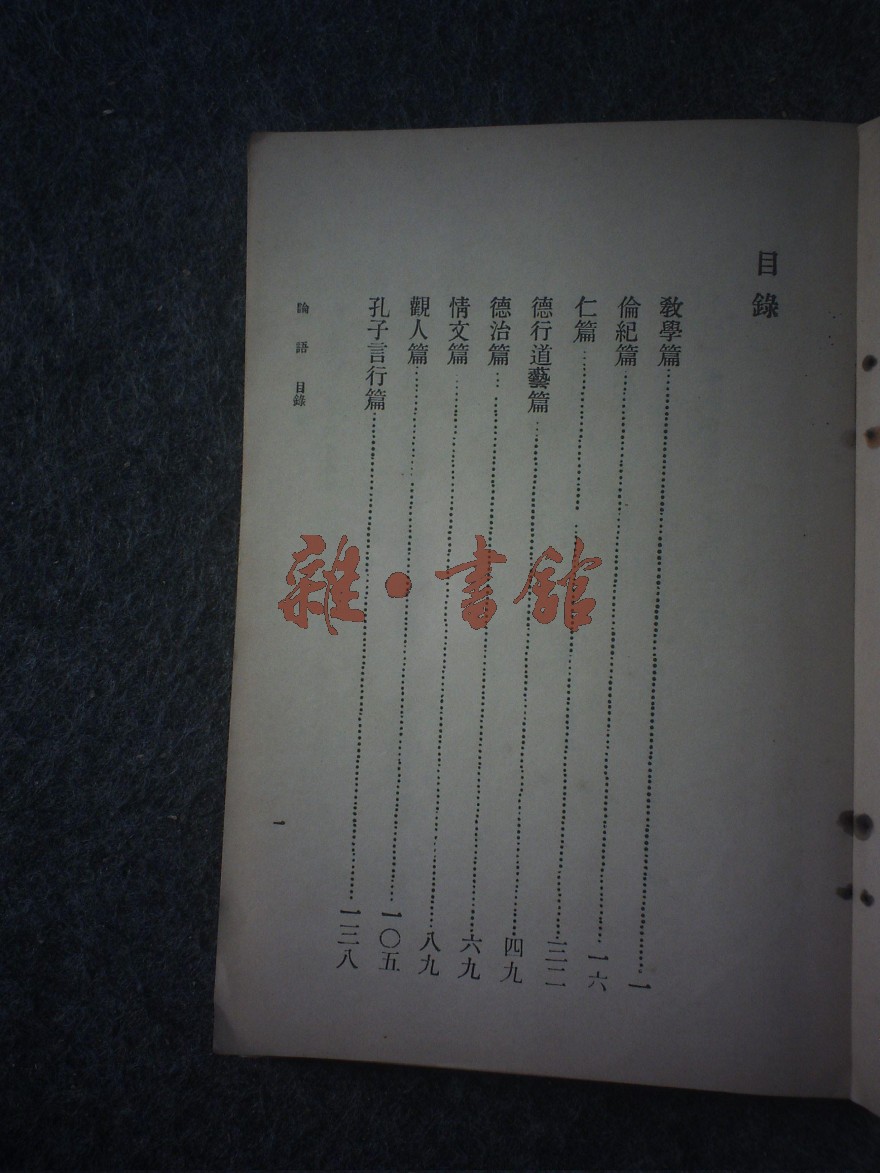 目錄
教學篇 一
倫紀篇 一六
仁篇 三二
德行道藝篇 四九
德治篇 六九
情文篇 八九
觀人篇 一〇五
孔子言行篇 一三八
論語 目錄
一
雜·書館